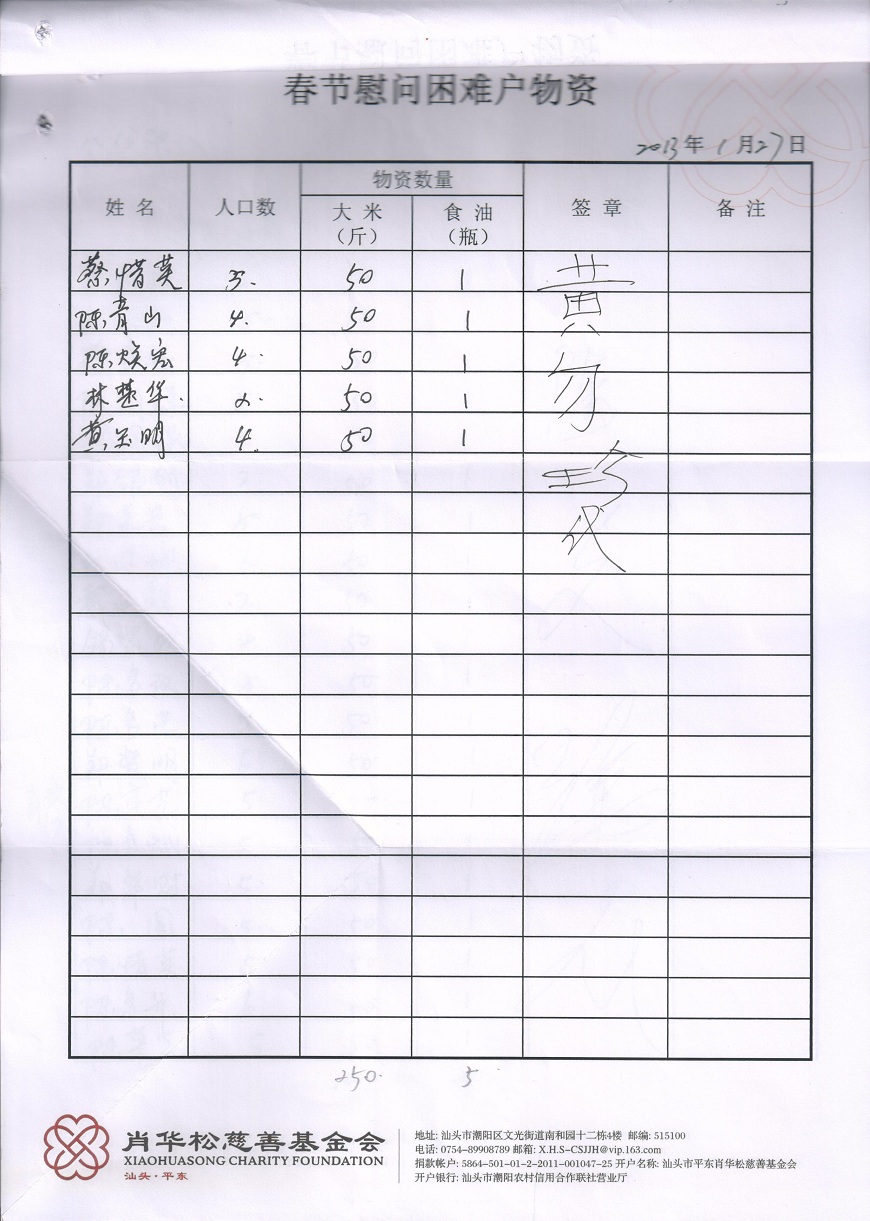 春节慰问困难户物资
2013年1月27日
姓名 人口数 物资数量 签章 备注
大米（斤） 食油（瓶）
蔡惜英 3. 50 1
陈青山 4. 50 1
陈焕宏 4. 50 1
林楚华. 2. 50 1
黄玉明 4. 50 1
黄
代
250. 5
肖华松慈善基金会
XIAOHUASONG CHARITY FOUNDATION
汕头·平东
地址: 汕头市潮阳区文光街道南和园十二栋4楼 邮编: 515100
电话: 0754-89908789 邮箱: X.H.S-CSJJH@vip.163.com
捐款帐户: 5864-501-01-2-2011-001047-25 开户名称: 汕头市平东肖华松慈善基金会
开户银行: 汕头市潮阳农村信用合作联社营业厅